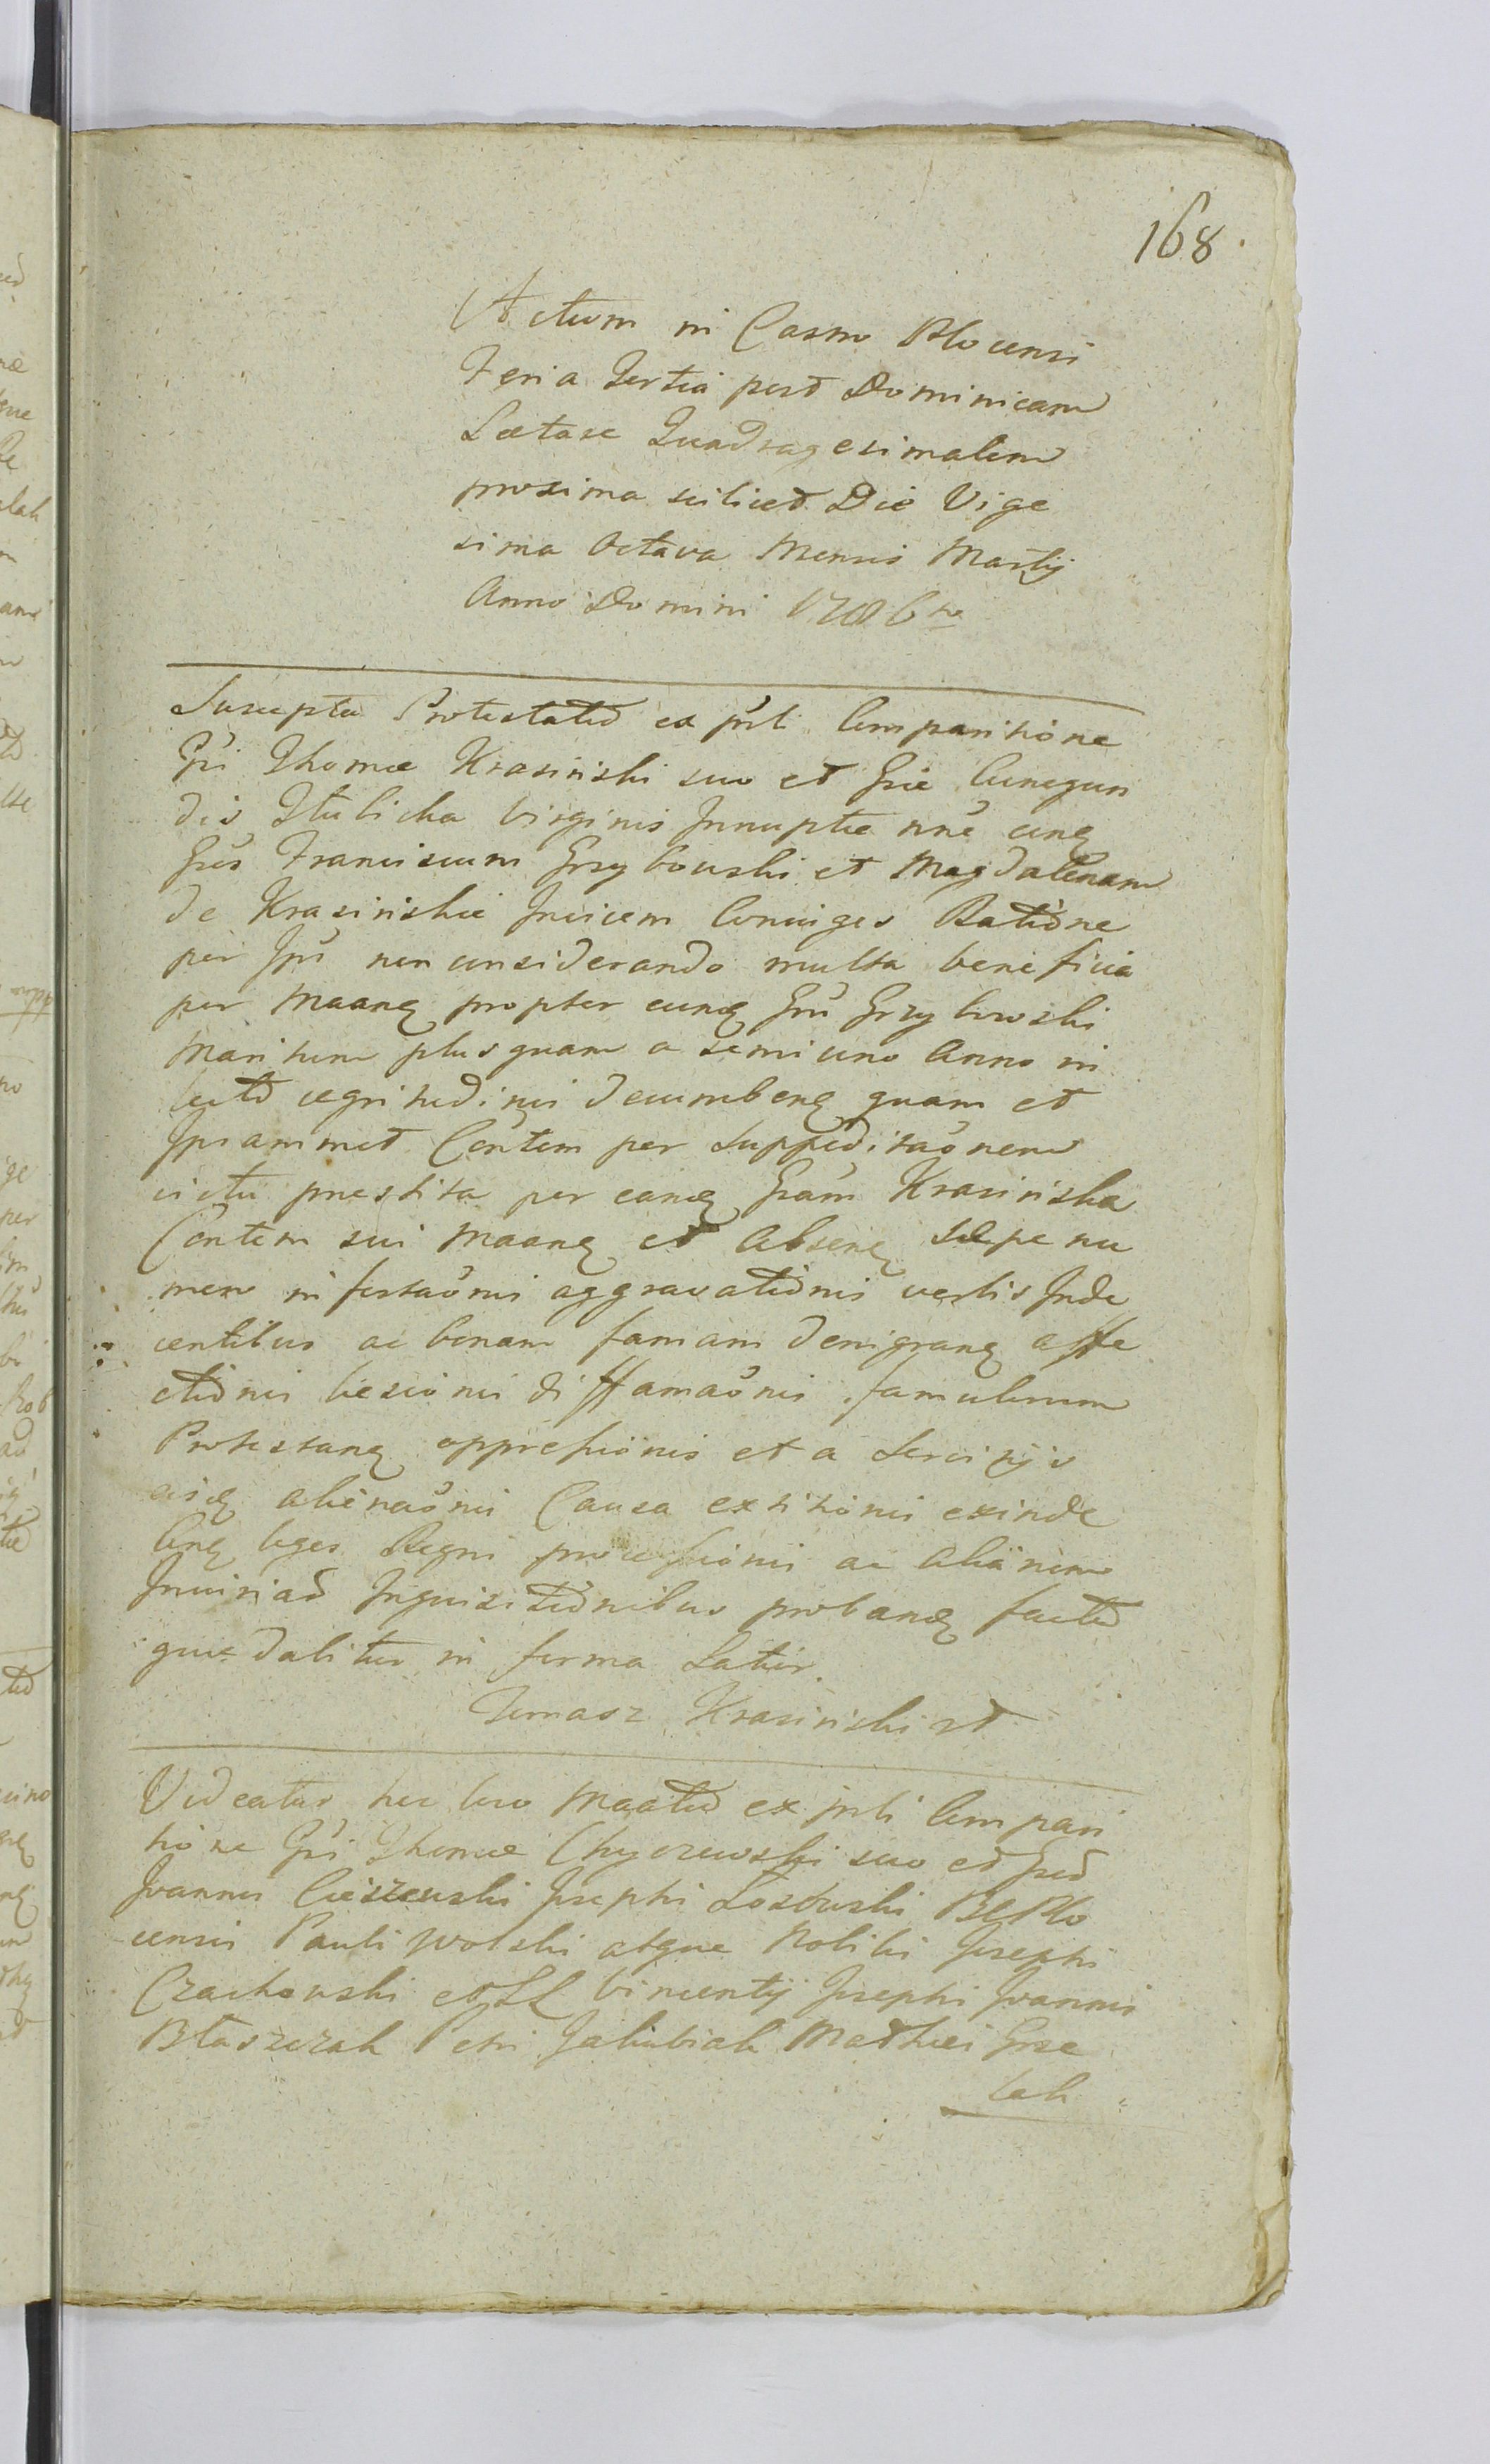 168.
Actum in Castro Plocensi
Feria Tertia post Dominicam
Lætare Quadragesimalem
proxima scilicet Die Vige
sima Octava Mensis Martij
Anno Domini 1786to
Suscepta Protestatio ex psti Comparitione
Gsi Thomæ Krasinski suo et Gsæ Cunegun
dis Virginis Innuptæ nne
Gsos Franciscum Grzybowski et Magdalenam
de Krasinskie Invicem Coniuges Ratione
per Ips non considerando multa beneficia
per Maanq propter eunq Gsu Grzybowski
Maritum plusquam a semi uno Anno in
lecto ægritudinis decumbenq quam et
Ipsammet Contem per Suppeditaonem
victu præstita per eanq Gsam Krasinska
Contem sui Maanq et Absenq sæpe nu
mero infestaonis aggravationis verbis Inde
centibus ac bonam famam denigranq affe
ctionis læsionis diffamaonis famulorum
Protestanq oppressionis et a Servitijs
eisq alienaonis Causa extitionis exinde
Cirq leges Regni processionis ac
Inquisitionibus probanq facto
quæ dabitur in forma Latior.
Tomasz Krasinski st
Videatur hic loco Maatio ex psti Compari
tione Gsi Thomæ Chyczewski suo et Gsod
Joannis Cieszewski Josephi Losowski BC Plo
censis Pauli Wolski atque Nobilis Josephi
Czachowski et LL Vincentij Josephi Joannis
Błaszczak Petri Jakubiak Mathæi Grze
lak